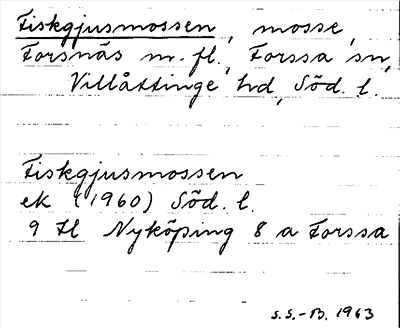 Fiskgjusmossen, mosse,
Forsnäs m. fl., Forssa sn,
Villåttinge hd, Söd. l.
Fiskgjusmossen
ek (1960) Söd. l.
9 H Nyköping 8 a Forssa
S.S.-B. 1963